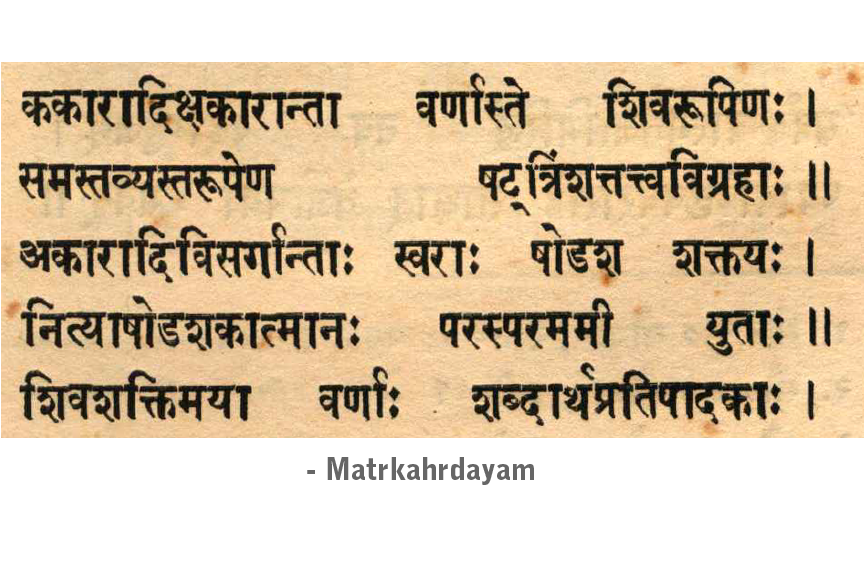 ककारादिक्षकारान्ता वर्णास्ते शिवरूपिणः ।
समस्तव्यस्तरूपेण षट्त्रिंशत्तत्त्वविग्रहाः ॥
अकारादिविसर्गान्ताः स्वराः षोडश शक्तयः ।
नित्याषोडशकात्मानः परस्परममी युताः ॥
शिवशक्तिमया वर्णाः शब्दार्थप्रतिपादकाः ।
- Matrkahrdayam